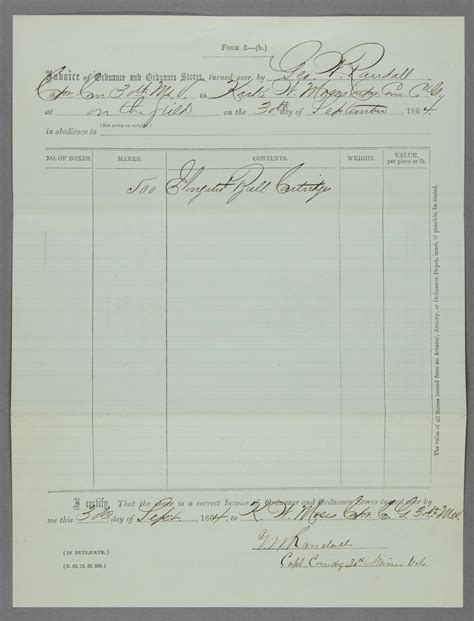 Form 2—(b.)
Invoice of Ordnance and Ordnance Stores, turned over by Geo. W. Randall
Com 30th Me. V. to W. Moses Com Co G
at on the field on the 30th day of September 1864
(See notes on validity.)
in obedience to
NO. OF BOXES. MARKS. CONTENTS. WEIGHT. VALUE, per piece or lb.
500 Elongated Ball Cartridges
The value of all Stores issued from an Arsenal, Armory, or Ordnance Depot, must, if possible, be stated.
I certify, That the above is a correct Invoice of Ordnance and Ordnance Stores turned over by
me this 30th day of Sept 1864, to K. W. Moses Com C. G 30th
Randall
(IN DUPLICATE.) Capt. Comdg 30th Maine Vols.